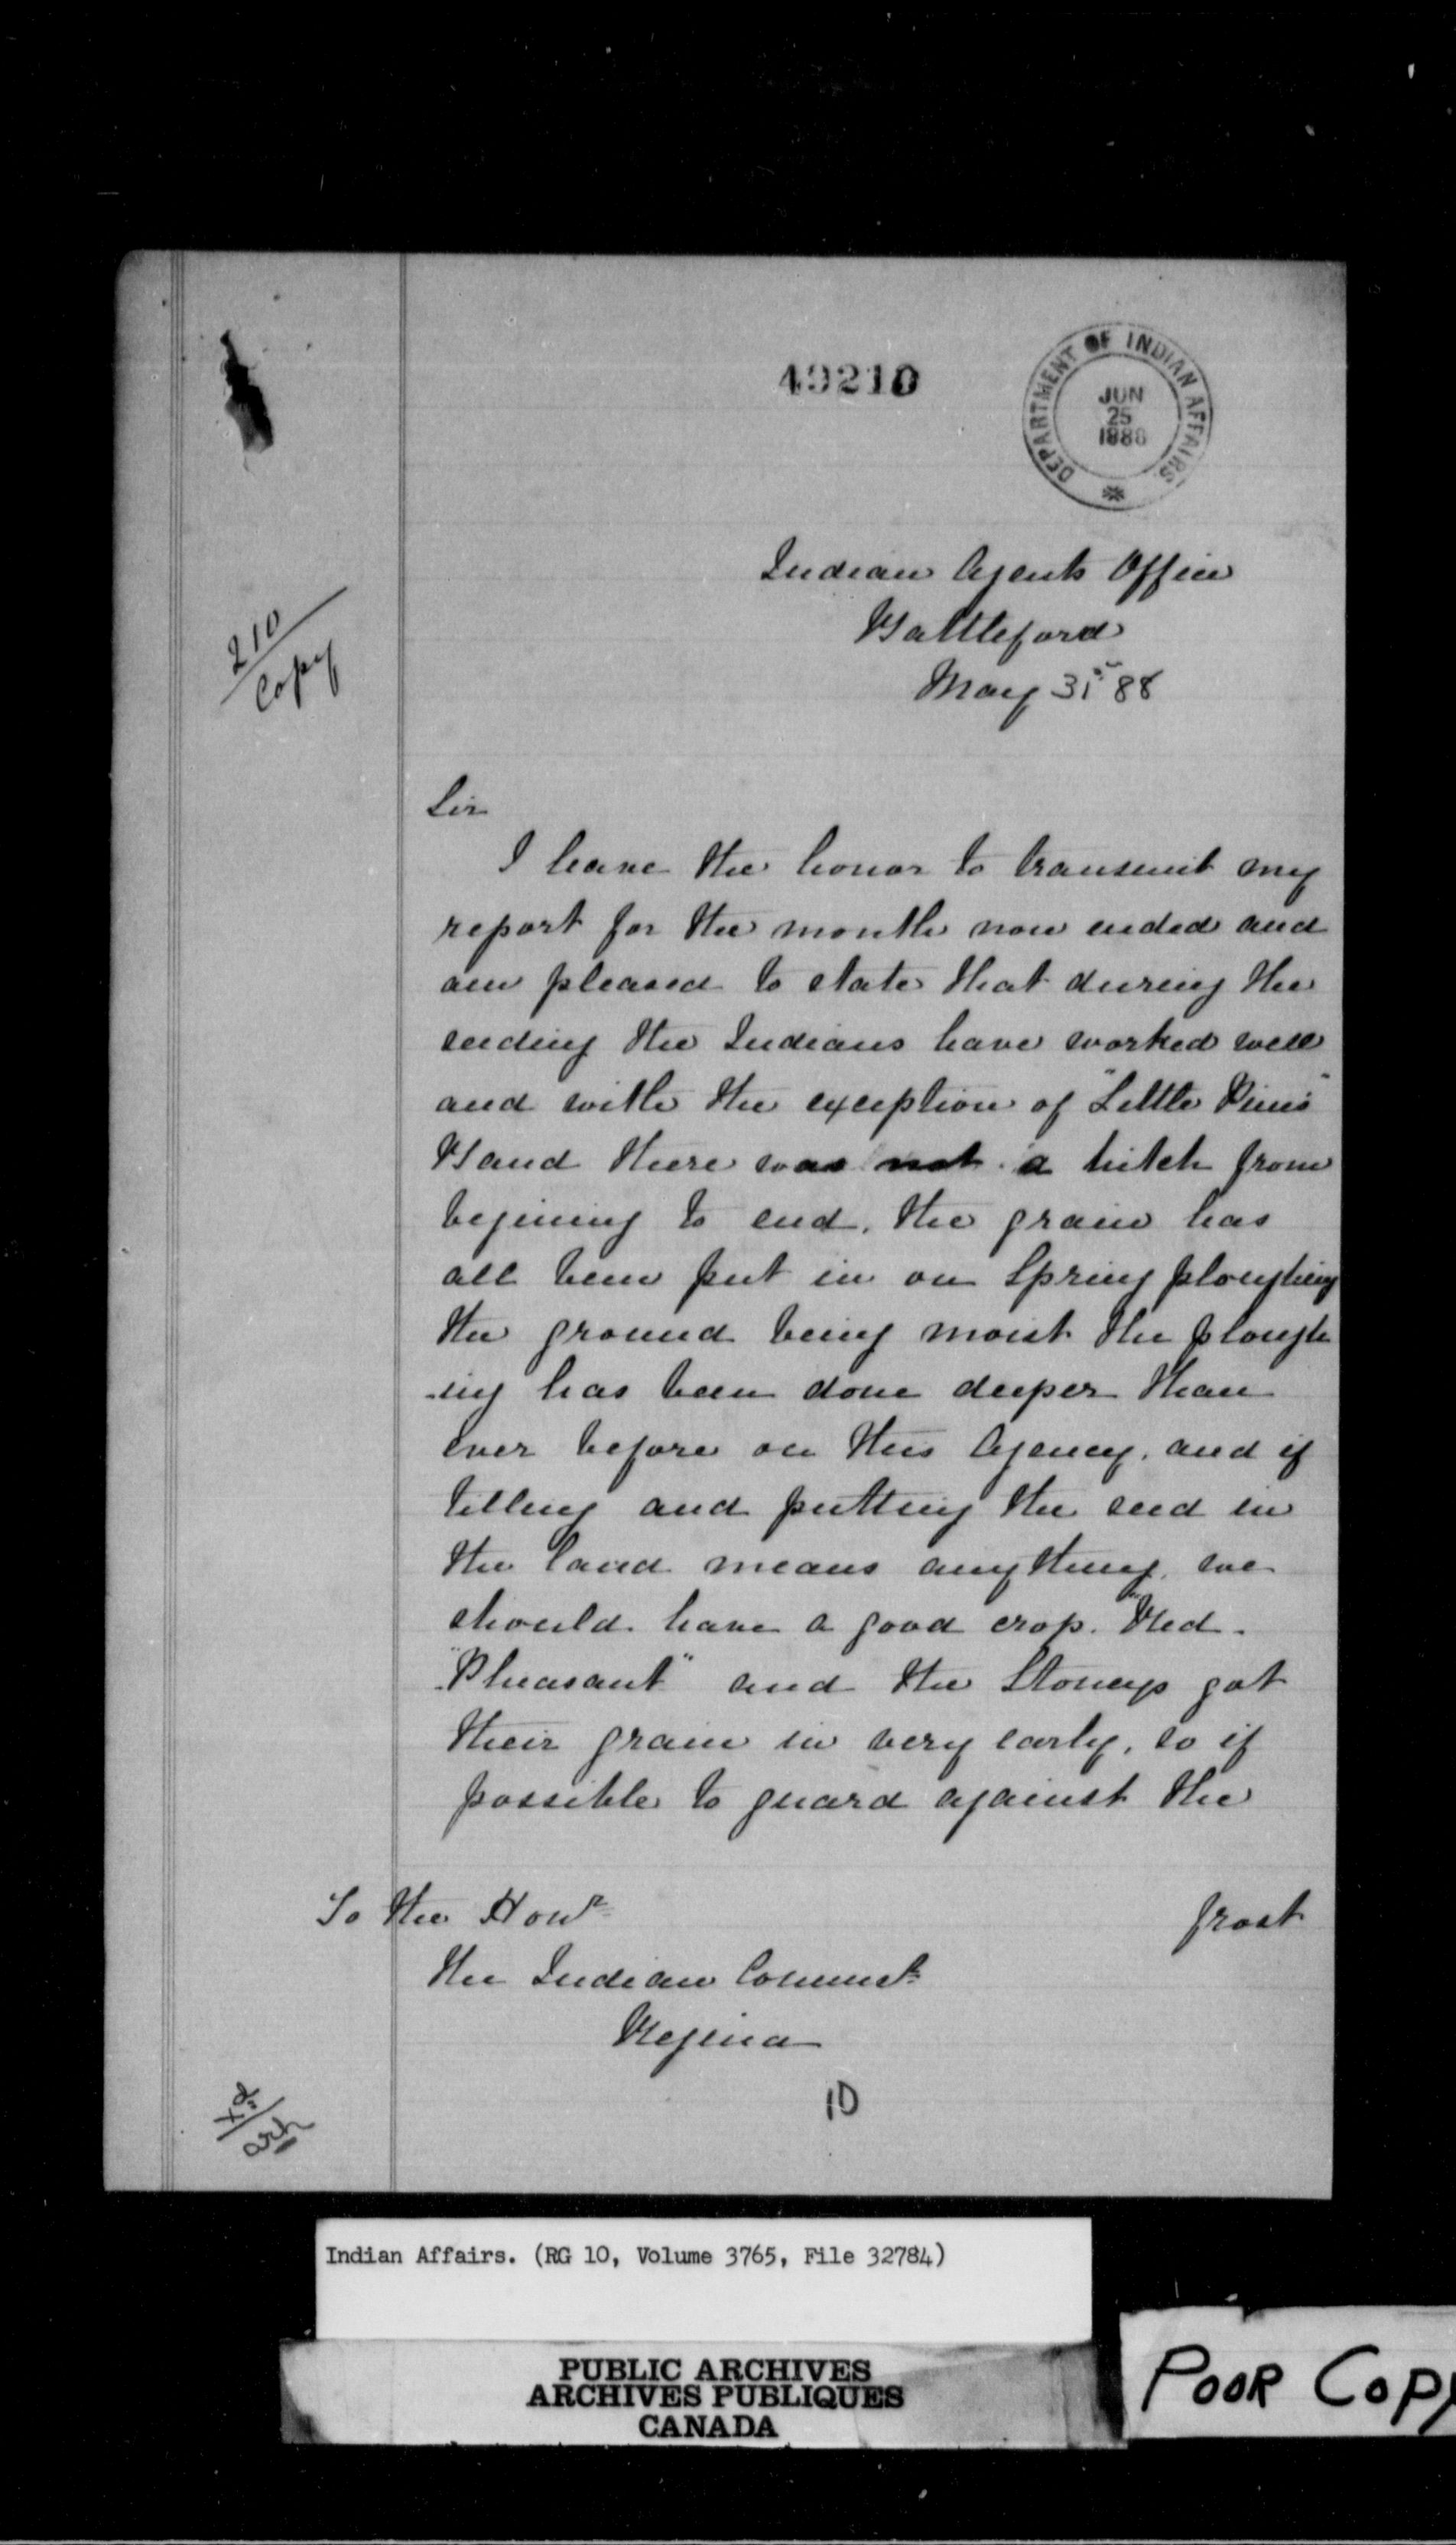 49210
DEPARTMENT OF INDIAN AFFAIRS.
JUN
25
1888
210
Copy
Indian Agents Office
Battleford
May 31st 88
Sir
I have the honor to transmit my
report for the month now ended and
am pleased to state that during the
seeding the Indians have worked well
and with the exception of "Little Pines"
Band there was not a hitch from
begining to end. the grain has
all been put in on Spring ploughing
the ground being moist the plough
-ing has been done deeper than
ever before on this Agency. and if
tilling and putting the seed in
the land means anything. we
should have a good crop. "Red
"Pheasant" and the Stoneys got
their grain in very early, so if
possible to guard against the
frost
To the Honble
the Indian Commr
Regina
10
Indian Affairs. (RG 10, Volume 3765, File 32784)
PUBLIC ARCHIVES
ARCHIVES PUBLIQUES
CANADA
POOR COPY